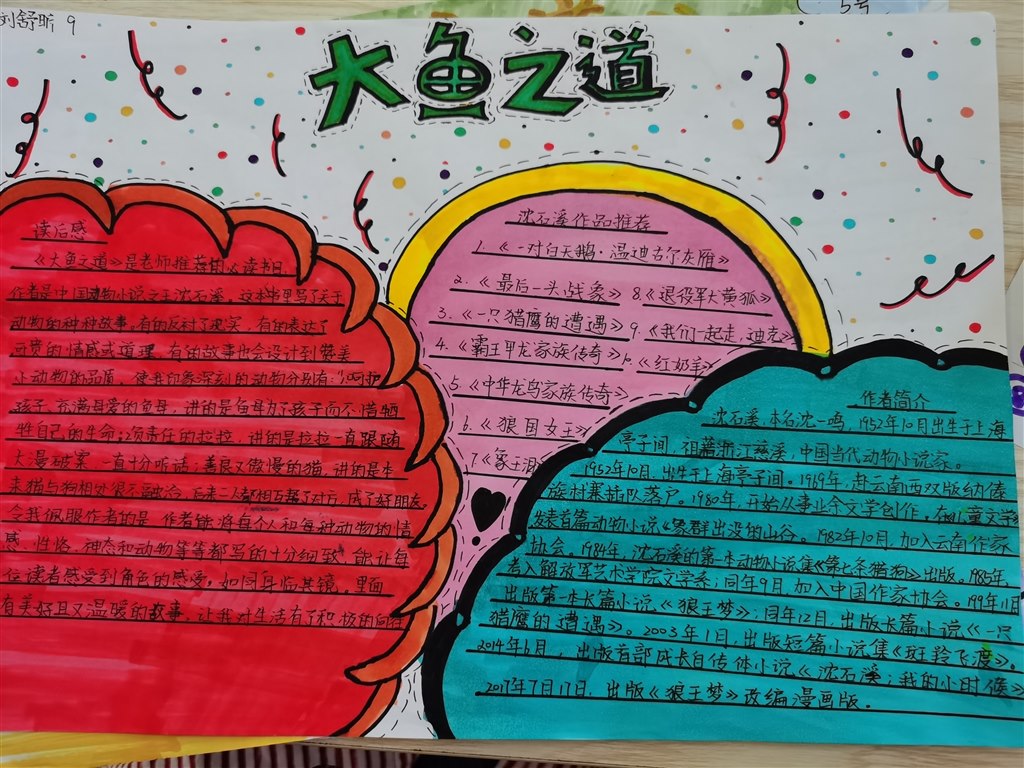 刘舒昕 9
5号
大鱼之道
读后感
《大鱼之道》是老师推荐的必读书目
作者是中国动物小说之王沈石溪。这本书里写了关于
动物的种种故事。有的反对了现实,有的表达了
可贵的情感或道理,有的故事也会设计到赞美
小动物的品质,使我印象深刻的动物分别有:
孩子、充满母爱的鱼母,讲的是鱼母为了孩子而不惜牺
牲自己的生命;负责任的拉拉,讲的是拉拉一直跟随
大漫破案,一直十分听话;善良又傲慢的猫,讲的是本
来猫与狗相处很不融洽,后来二人都相互帮了对方,成了好朋友。
令我佩服作者的是,作者能将每个人和每种动物的情
感、性格、神态和动物等等都写的十分细致,能让每
位读者感受到角色的感受。如同身临其镜,里面
有美好且又温暖的故事,让我对生活有了积极的向往
沈石溪作品推荐
1.《一对白天鹅:温迪古尔灰雁》
2.《最后一头战象》 8.《退役军犬黄狐》
3.《一只猎鹰的遭遇》 9.《我们一起走,迪克》
4.《霸王甲龙家族传奇》 10.《红奶羊》
5.《中华龙鸟家族传奇》
6.《狼国女王》
7《象王泪
作者简介
沈石溪,本名沈一鸣,1952年10月出生于上海
亭子间,祖籍浙江慈溪,中国当代动物小说家。
1952年10月,出生于上海亭子间。1969年,赴云南西双版纳傣
族村寨插队落户。1980年,开始从事业余文学创作,在儿童文学
发表首篇动物小说《象群出没的山谷。1982年10月,加入云南作家
协会。1984年,沈石溪的第一本动物小说集《第七条猎狗》出版。1985年,
考入解放军艺术学院文学系;同年9月,加入中国作家协会。1991年11月
出版第一本长篇小说《狼王梦》;同年12月,出版长篇小说《一只
猎鹰的遭遇》。2003年1月,出版短篇小说集《斑羚飞渡》。
2014年6月,出版首部成长自传体小说《沈石溪:我的小时候》
2017年7月17日,出版《狼王梦》改编漫画版。